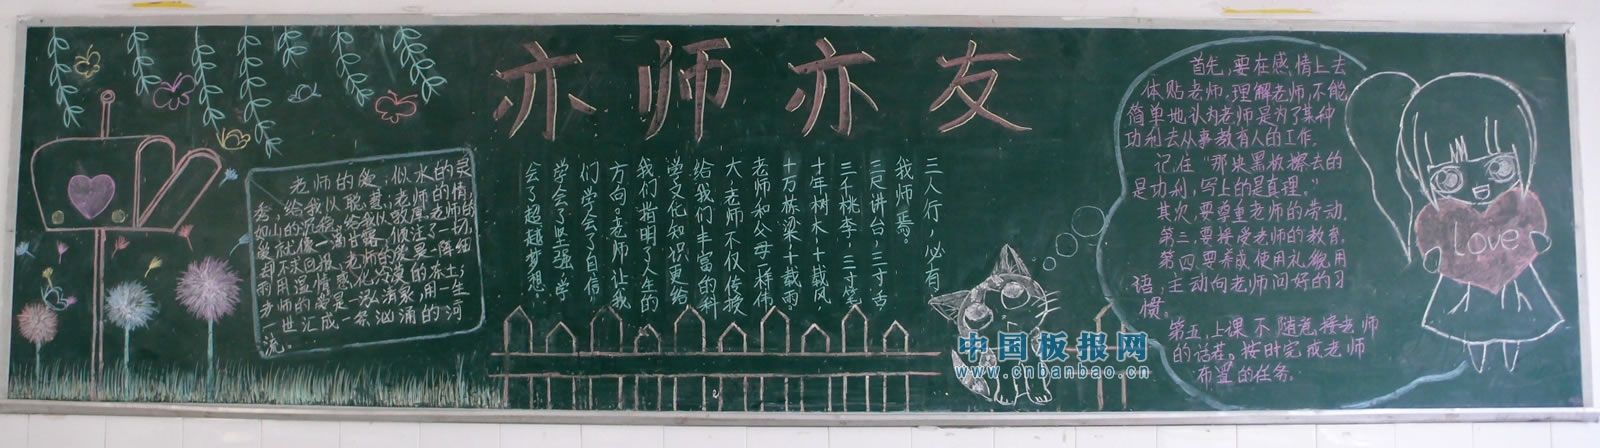 亦师亦友
老师的爱,似水的灵
秀,给我以聪慧;老师的情
如山的沉稳,给我以敦厚。老师的
爱就像一滴甘露,倾注了一切,
却不求回报;老师的爱是一阵细
雨用温情感化冷漠的冻土;
步师的爱是一泓清泉,用一生
一世汇成一条汹涌的河
流。
三人行,必有
我师焉。
三尺讲台,三寸舌
三千桃李,三寸笔
十年树木,十载风,
十万栋梁十载雨。
老师和父母一样伟
大,老师不仅传授
给我们丰富的科
学文化知识更给
我们指明了人生的
方向。老师让我
们学会了自信,
学会了坚强,学
会了超越梦想。
首先,要在感情上去
体贴老师,理解老师,不能
简单地认为老师是为了某种
功利去从事教育人的工作。
记住“那块黑板擦去的
是功利,写上的是真理。”
其次,要尊重老师的劳动。
第三,要接受老师的教育。
第四,要养成使用礼貌用
语,主动向老师问好的习
惯。
第五,上课不随意接老师
的话茬。按时完成老师
布置的任务。
Love
中国板报网
www.cnbanbao.cn